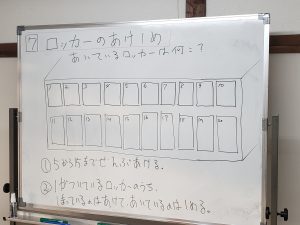 7 ロッカーのあけしめ
あいているロッカーは何こ？
1 2 3 4 5 6 7 8 9 10
11 12 13 14 15 16 17 18 19 20
① 5から15まで ぜんぶあける。
② 1がついているロッカーのうち、
しまっているのはあけて、あいているのはしめる。